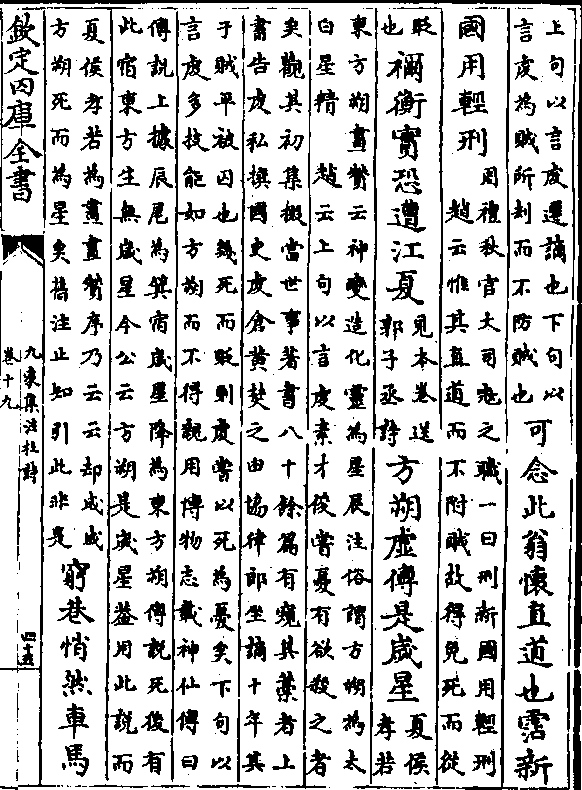 上句以言虔遷謫也下句以
言虔為賊所刧而不防賊也
可念此翁懷直道也霑新
國用輕刑
周禮秋官大司寇之職一曰刑新國用輕刑
趙云惟其直道而不附賊故得免死而從
貶
也
禰衡實恐遭江夏
見本卷送
郭子丞詩
方朔虛傳是歲星
夏侯
孝若
東方朔畫贊云神變造化靈為星辰注俗謂方朔為太
白星精 趙云上句以言虔素才俊嘗憂有欲殺之者
矣觀其初集掇當世事著書八十餘篇有窺其藁者上
書告虔私撰國史虔倉黃焚之由協律郎坐謫十年其
于賊平被囚也幾死而貶則虔嘗以死為憂矣下句以
言虔多技能如方朔而不得親用博物志載神仙傳曰
傅說上據辰尾為箕宿歲星降為東方朔傅說死後有
此宿東方生無歲星今公云方朔是歲星葢用此說而
夏侯孝若為畫畫贊序乃云云却成歲
方朔死而為星矣舊注止知引此非是
窮巷悄然車馬
欽定四庫全書
九家集注杜詩
卷十九